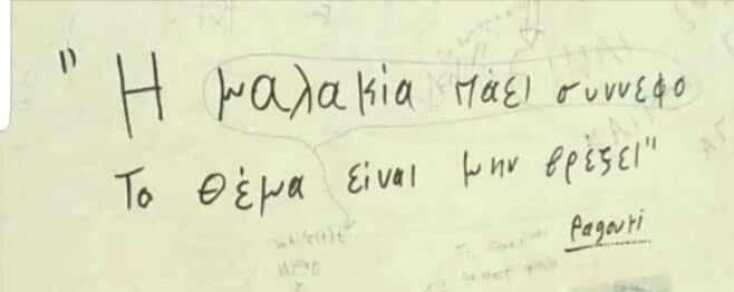 "Η μαλακία πάει συννεφο
Το θέμα είναι μην βρέξει"
Ragouti